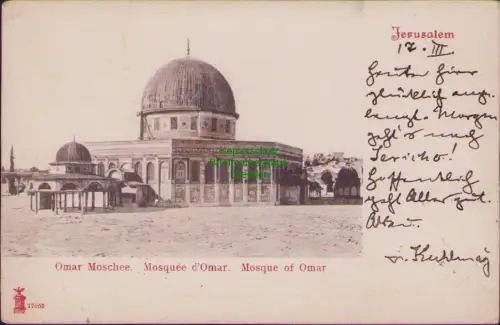 Jerusalem
17. III.
Heute hier
glücklich ange-
langt. Morgen
geht's nach
Jericho!
Hoffentlich
geht Alles gut.
Omar Moschee. Mosquée d'Omar. Mosque of Omar
17068